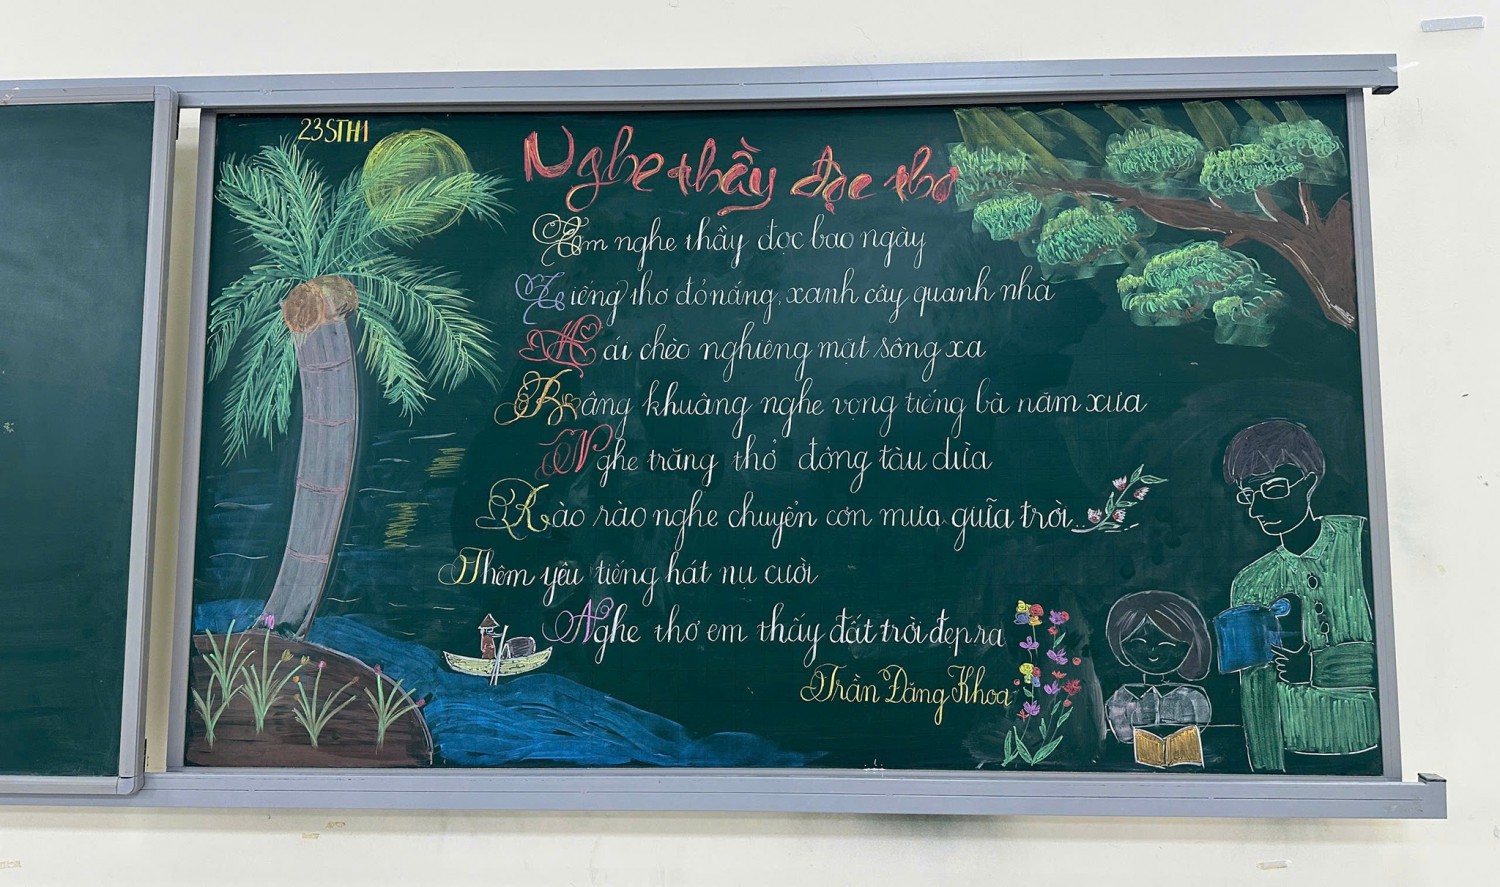 23STH1
Nghe thầy đọc thơ
Em nghe thầy đọc bao ngày
Tiếng thơ đỏ nắng, xanh cây quanh nhà
Mái chèo nghiêng mặt sông xa
Bâng khuâng nghe vọng tiếng bà năm xưa
Nghe trăng thở động tàu dừa
Rào rào nghe chuyển cơn mưa giữa trời...
Thêm yêu tiếng hát nụ cười
Nghe thơ em thấy đất trời đẹp ra
Trần Đăng Khoa